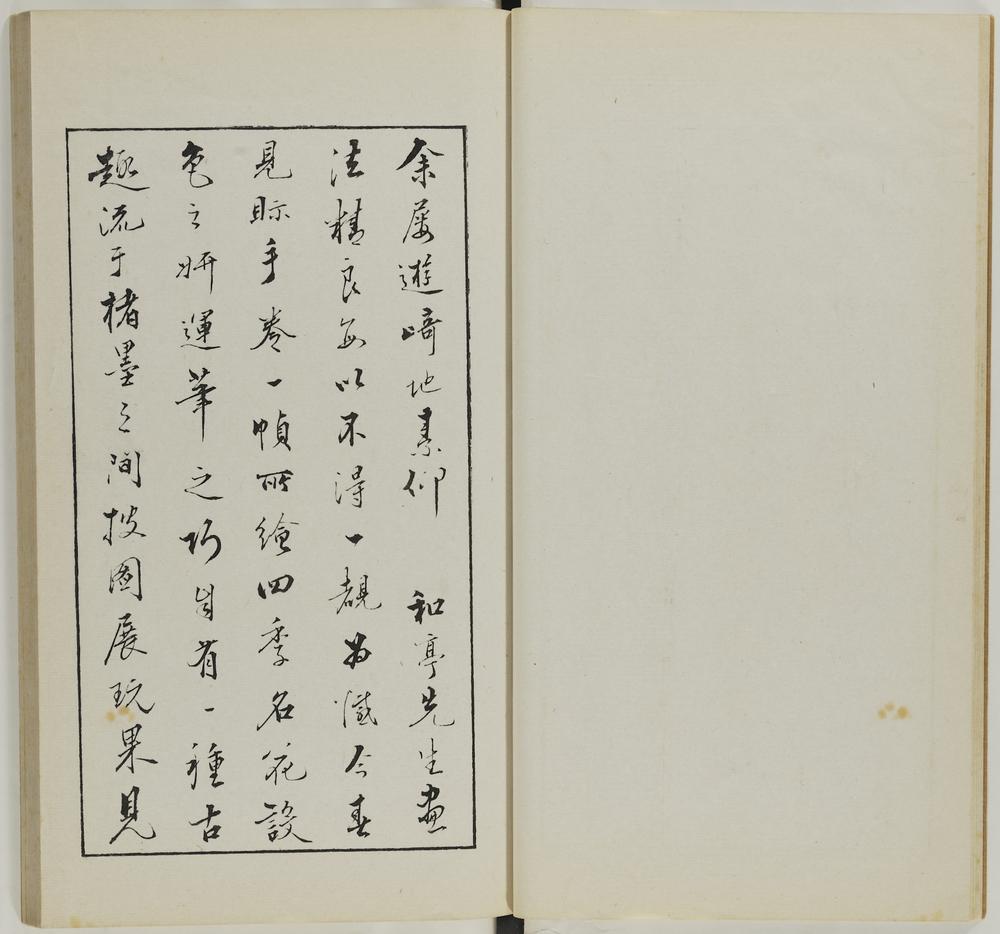 余屡遊崎地素仰　和亭先生畫
法精良每以不得一覩為憾今春
見眎手卷一幀所繪四季名花設
色之妍運筆之巧自有一種古
趣流于楮墨之間披圖展玩果見